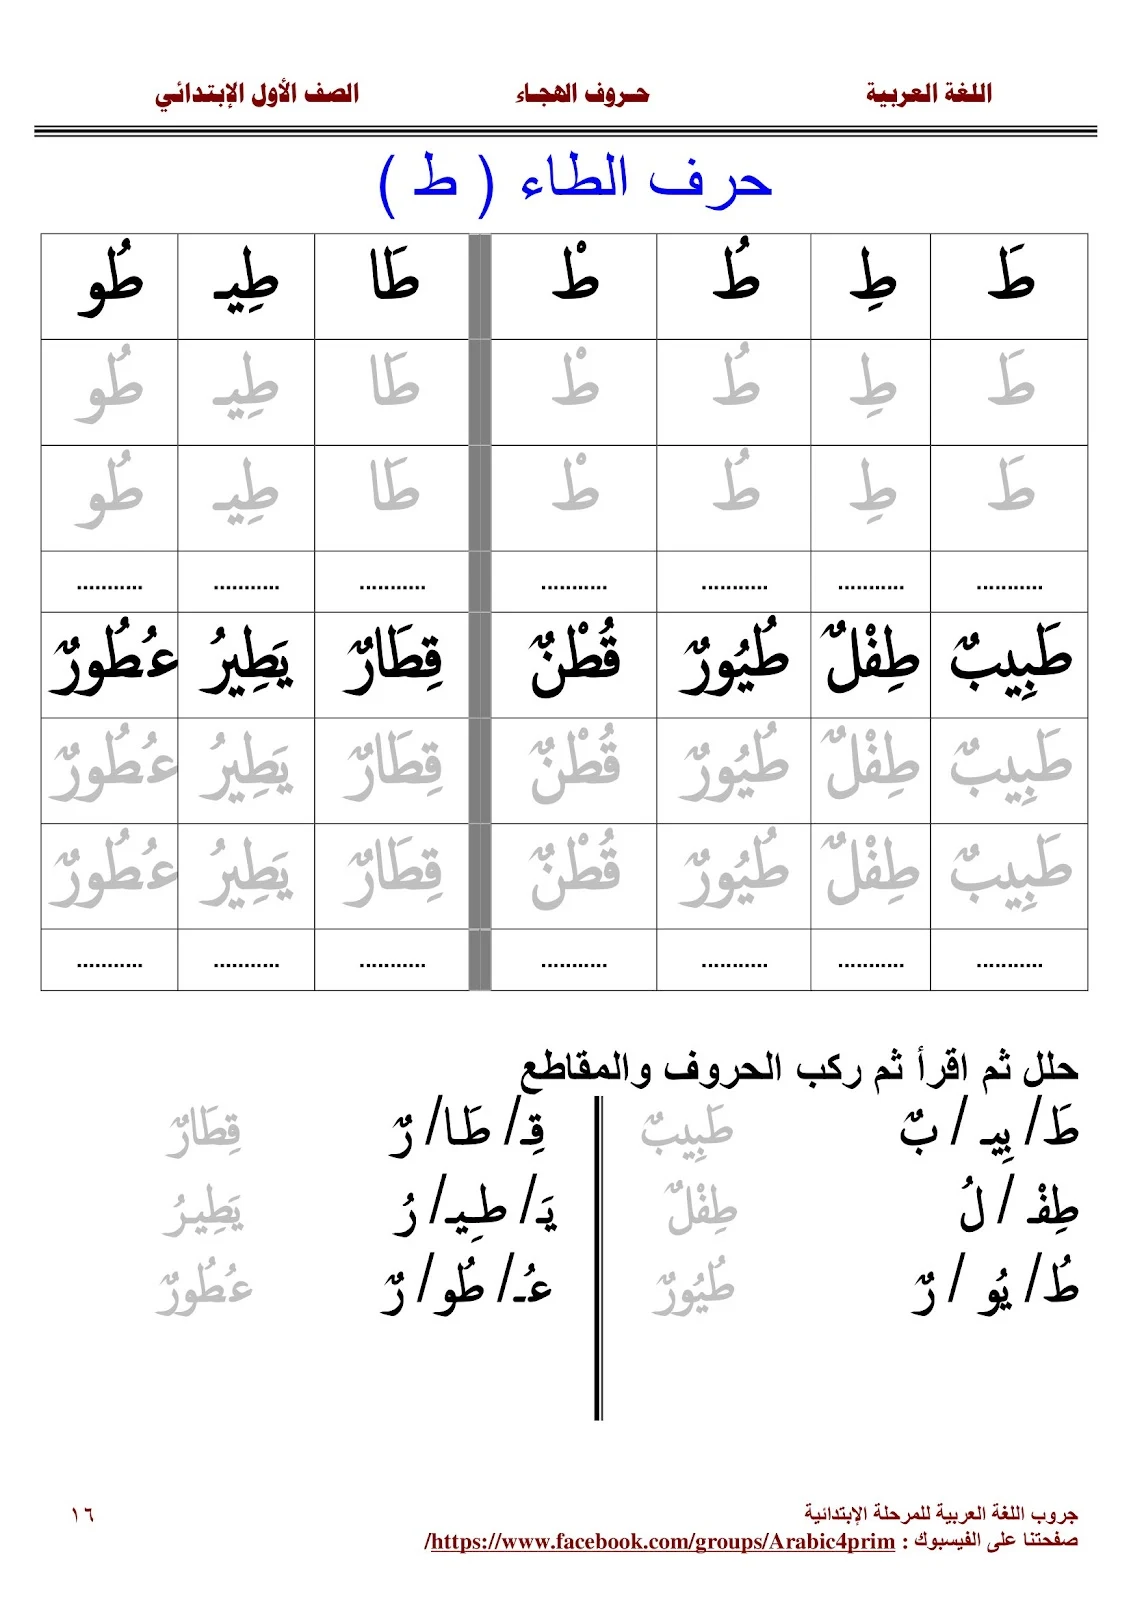 اللغة العربية حروف الهجاء الصف الأول الإبتدائي
حرف الطاء ( ط )
طَ طِ طُ طْ طَا طِيـ طُو
طَ طِ طُ طْ طَا طِيـ طُو
طَ طِ طُ طْ طَا طِيـ طُو
........... ........... ........... ........... ........... ........... ...........
طَبِيبٌ طِفْلٌ طُيُورٌ قُطْنٌ قِطَارٌ يَطِيرُ عُطُورٌ
طَبِيبٌ طِفْلٌ طُيُورٌ قُطْنٌ قِطَارٌ يَطِيرُ عُطُورٌ
طَبِيبٌ طِفْلٌ طُيُورٌ قُطْنٌ قِطَارٌ يَطِيرُ عُطُورٌ
........... ........... ........... ........... ........... ........... ...........
حلل ثم اقرأ ثم ركب الحروف والمقاطع
طَ/ بِيـ / بٌ طَبِيبٌ قِـ/ طَـا/ رٌ قِطَارٌ
طِفْـ / لُ طِفْلٌ يَـ/ طِـيـ/ رُ يَطِيـرُ
طُ/ يُو / رٌ طُيُورٌ عُـ/ طُو/ رٌ عُطُورٌ
جروب اللغة العربية للمرحلة الإبتدائية ١٦
صفحتنا على الفيسبوك : https://www.facebook.com/groups/Arabic4prim/